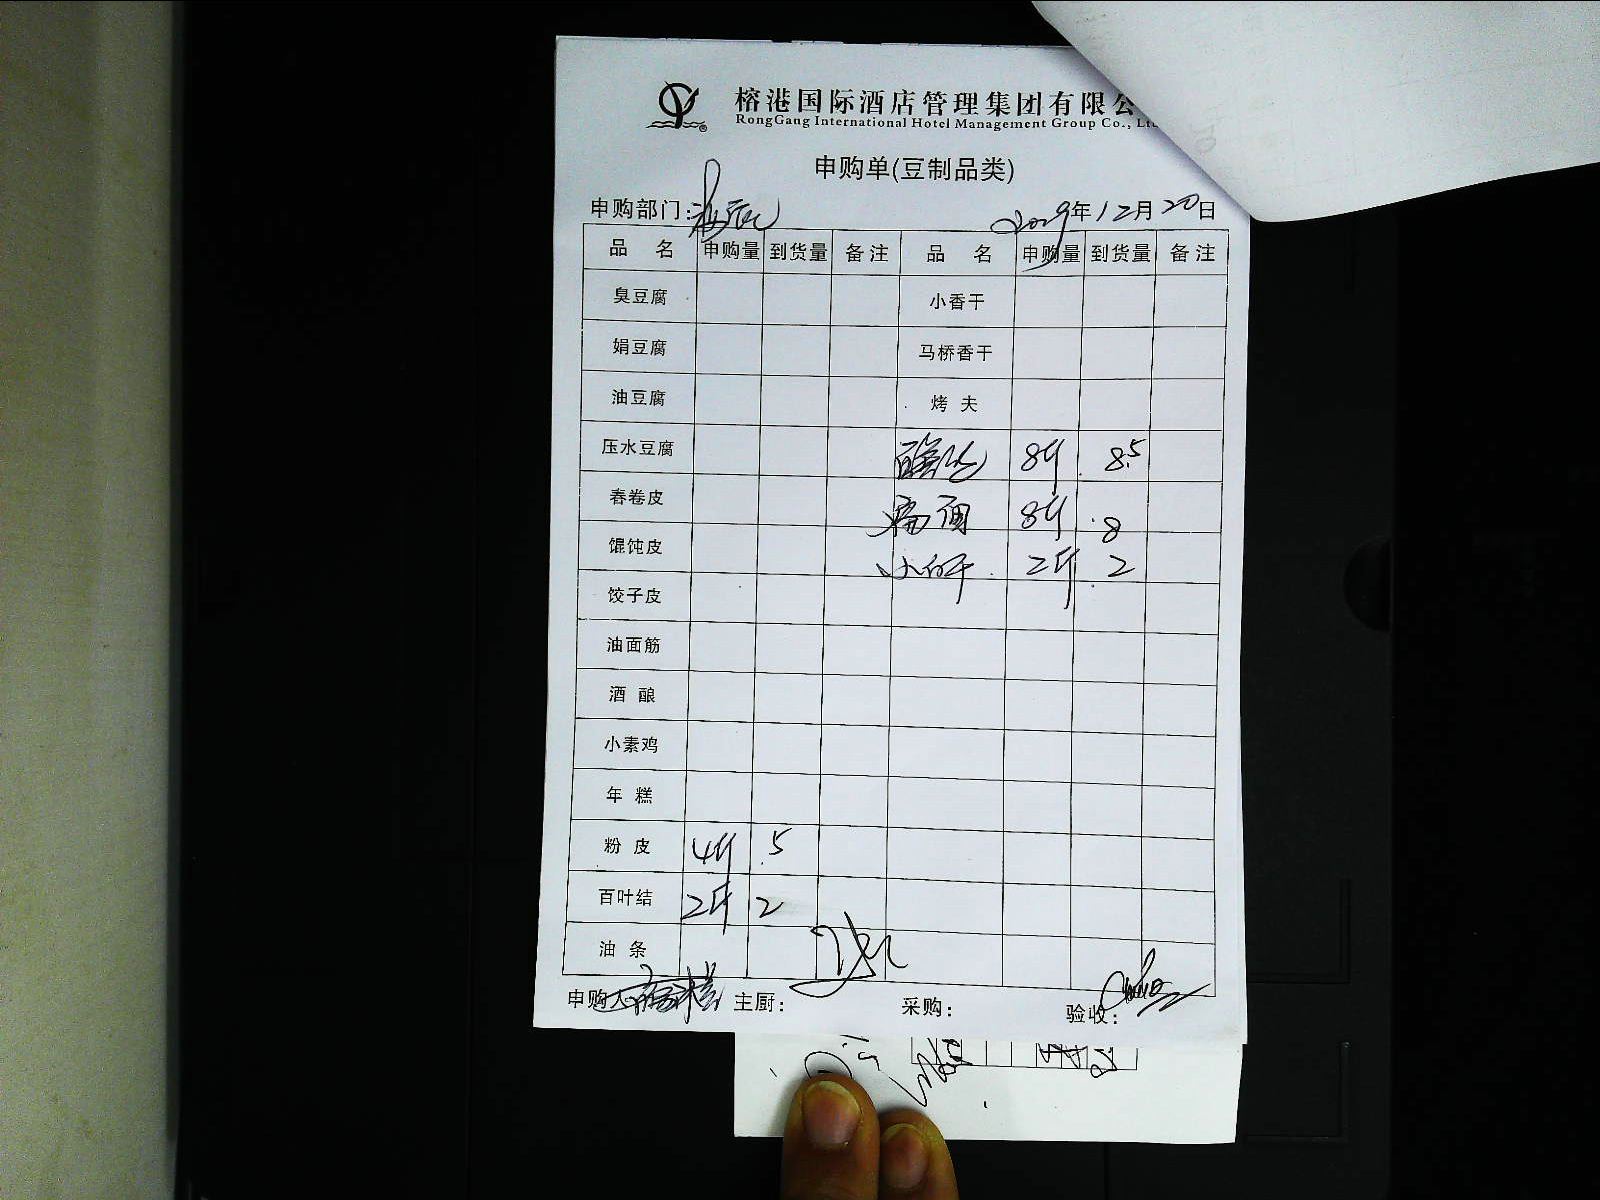 榕港国际酒店管理集团有限公
RongGang International Hotel Management Group Co., Ltd
申购单(豆制品类)
申购部门: 年12月20日
品 名 申购量 到货量 备注 品 名 申购量 到货量 备注
臭豆腐 小香干
娟豆腐 马桥香干
油豆腐 烤 夫
压水豆腐 8斤 8.5
春卷皮 8斤 8
馄饨皮 小白干 2斤 2
饺子皮
油面筋
酒 酿
小素鸡
年 糕
粉 皮 4斤 5
百叶结 2斤 2
油 条
申购人 主厨: 采购: 验收: